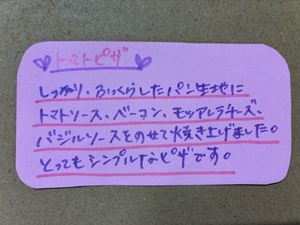 トマトピザ
しっかり、ふっくらしたパン生地に
トマトソース、ベーコン、モッツァレラチーズ、
バジルソースをのせて焼き上げました。
とってもシンプルなピザです。